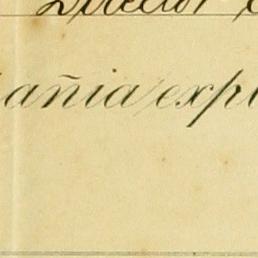 Director
añia expl